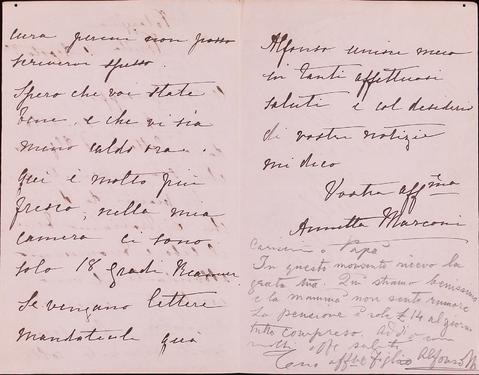 cura perciò non posso
scrivervi spesso.
Spero che voi state
bene, e che vi sia
meno caldo ora.
qui è molto più
fresco, nella mia
camera ci sono
solo 18 gradi Reaumur
Se vengono lettere
mandatecele quà
Alfonso unisce meco
in tanti affettuosi
saluti e col desiderio
di vostre notizie
mi dico
Vostra affma
Annetta Marconi
Carissimo Papà
In questo momento ricevo la
grata tua. Qui stiamo benissimo
e la mamma non sente rumore
La pensione è solo £ 14 al giorno
tutto compreso. Addio con
molti saluti
Tuo affmo figlio Alfonso M